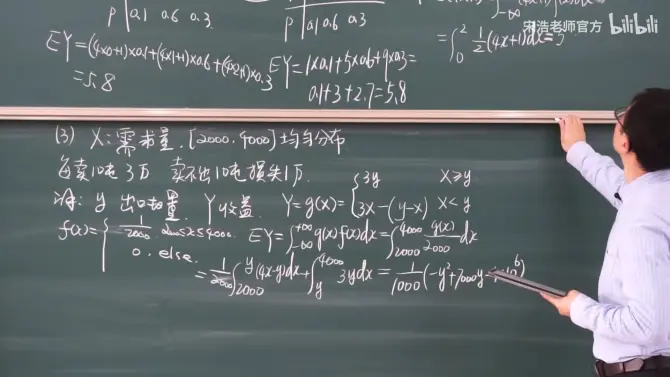 P | 0.1 0.6 0.3
宋浩老师官方 bilibili
EY=(4×0+1)×0.1+(4×1+1)×0.6+(4×2+1)×0.3
=5.8
EY=1×0.1+5×0.6+9×0.3
0.1+3+2.7=5.8
=∫₀² ½(4x+1)dx=5
(3) X:需求量.[2000.4000]均匀分布
每卖10吨3万 卖不出10吨损失1万.
设:y 出口量. Y收益. Y=g(x)={3y X≥y
3X-(y-X) X<y
f(x)={1/2000 2000≤x≤4000.
0. else.
EY=∫₋∞^{+∞}g(x)f(x)dx=∫₂₀₀₀^{4000} g(x)/2000 dx
=1/2000 ∫₂₀₀₀^{y}(4x-y)dx+∫_y^{4000}3ydx=1/1000(-y²+7000y